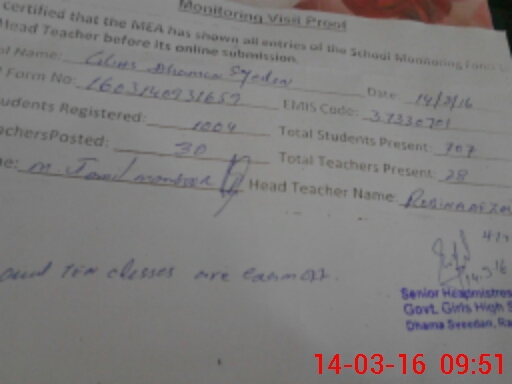 Monitoring Visit Proof
certified that the MEA has shown all entries of the School Monitoring Form
Head Teacher before its online submission.
ol Name: GGHS Dhamma Syedan Date 14/3/16
Form No: 1603140931657 EMIS Code: 37330701
udents Registered: 1004 Total Students Present: 707
achersPosted: 30 Total Teachers Present: 28
me: M Head Teacher Name:
and ten classes are
14.3.16
Senior Headmistress
Govt. Girls High S
Dhama Syeedan, Ra
14-03-16 09:51